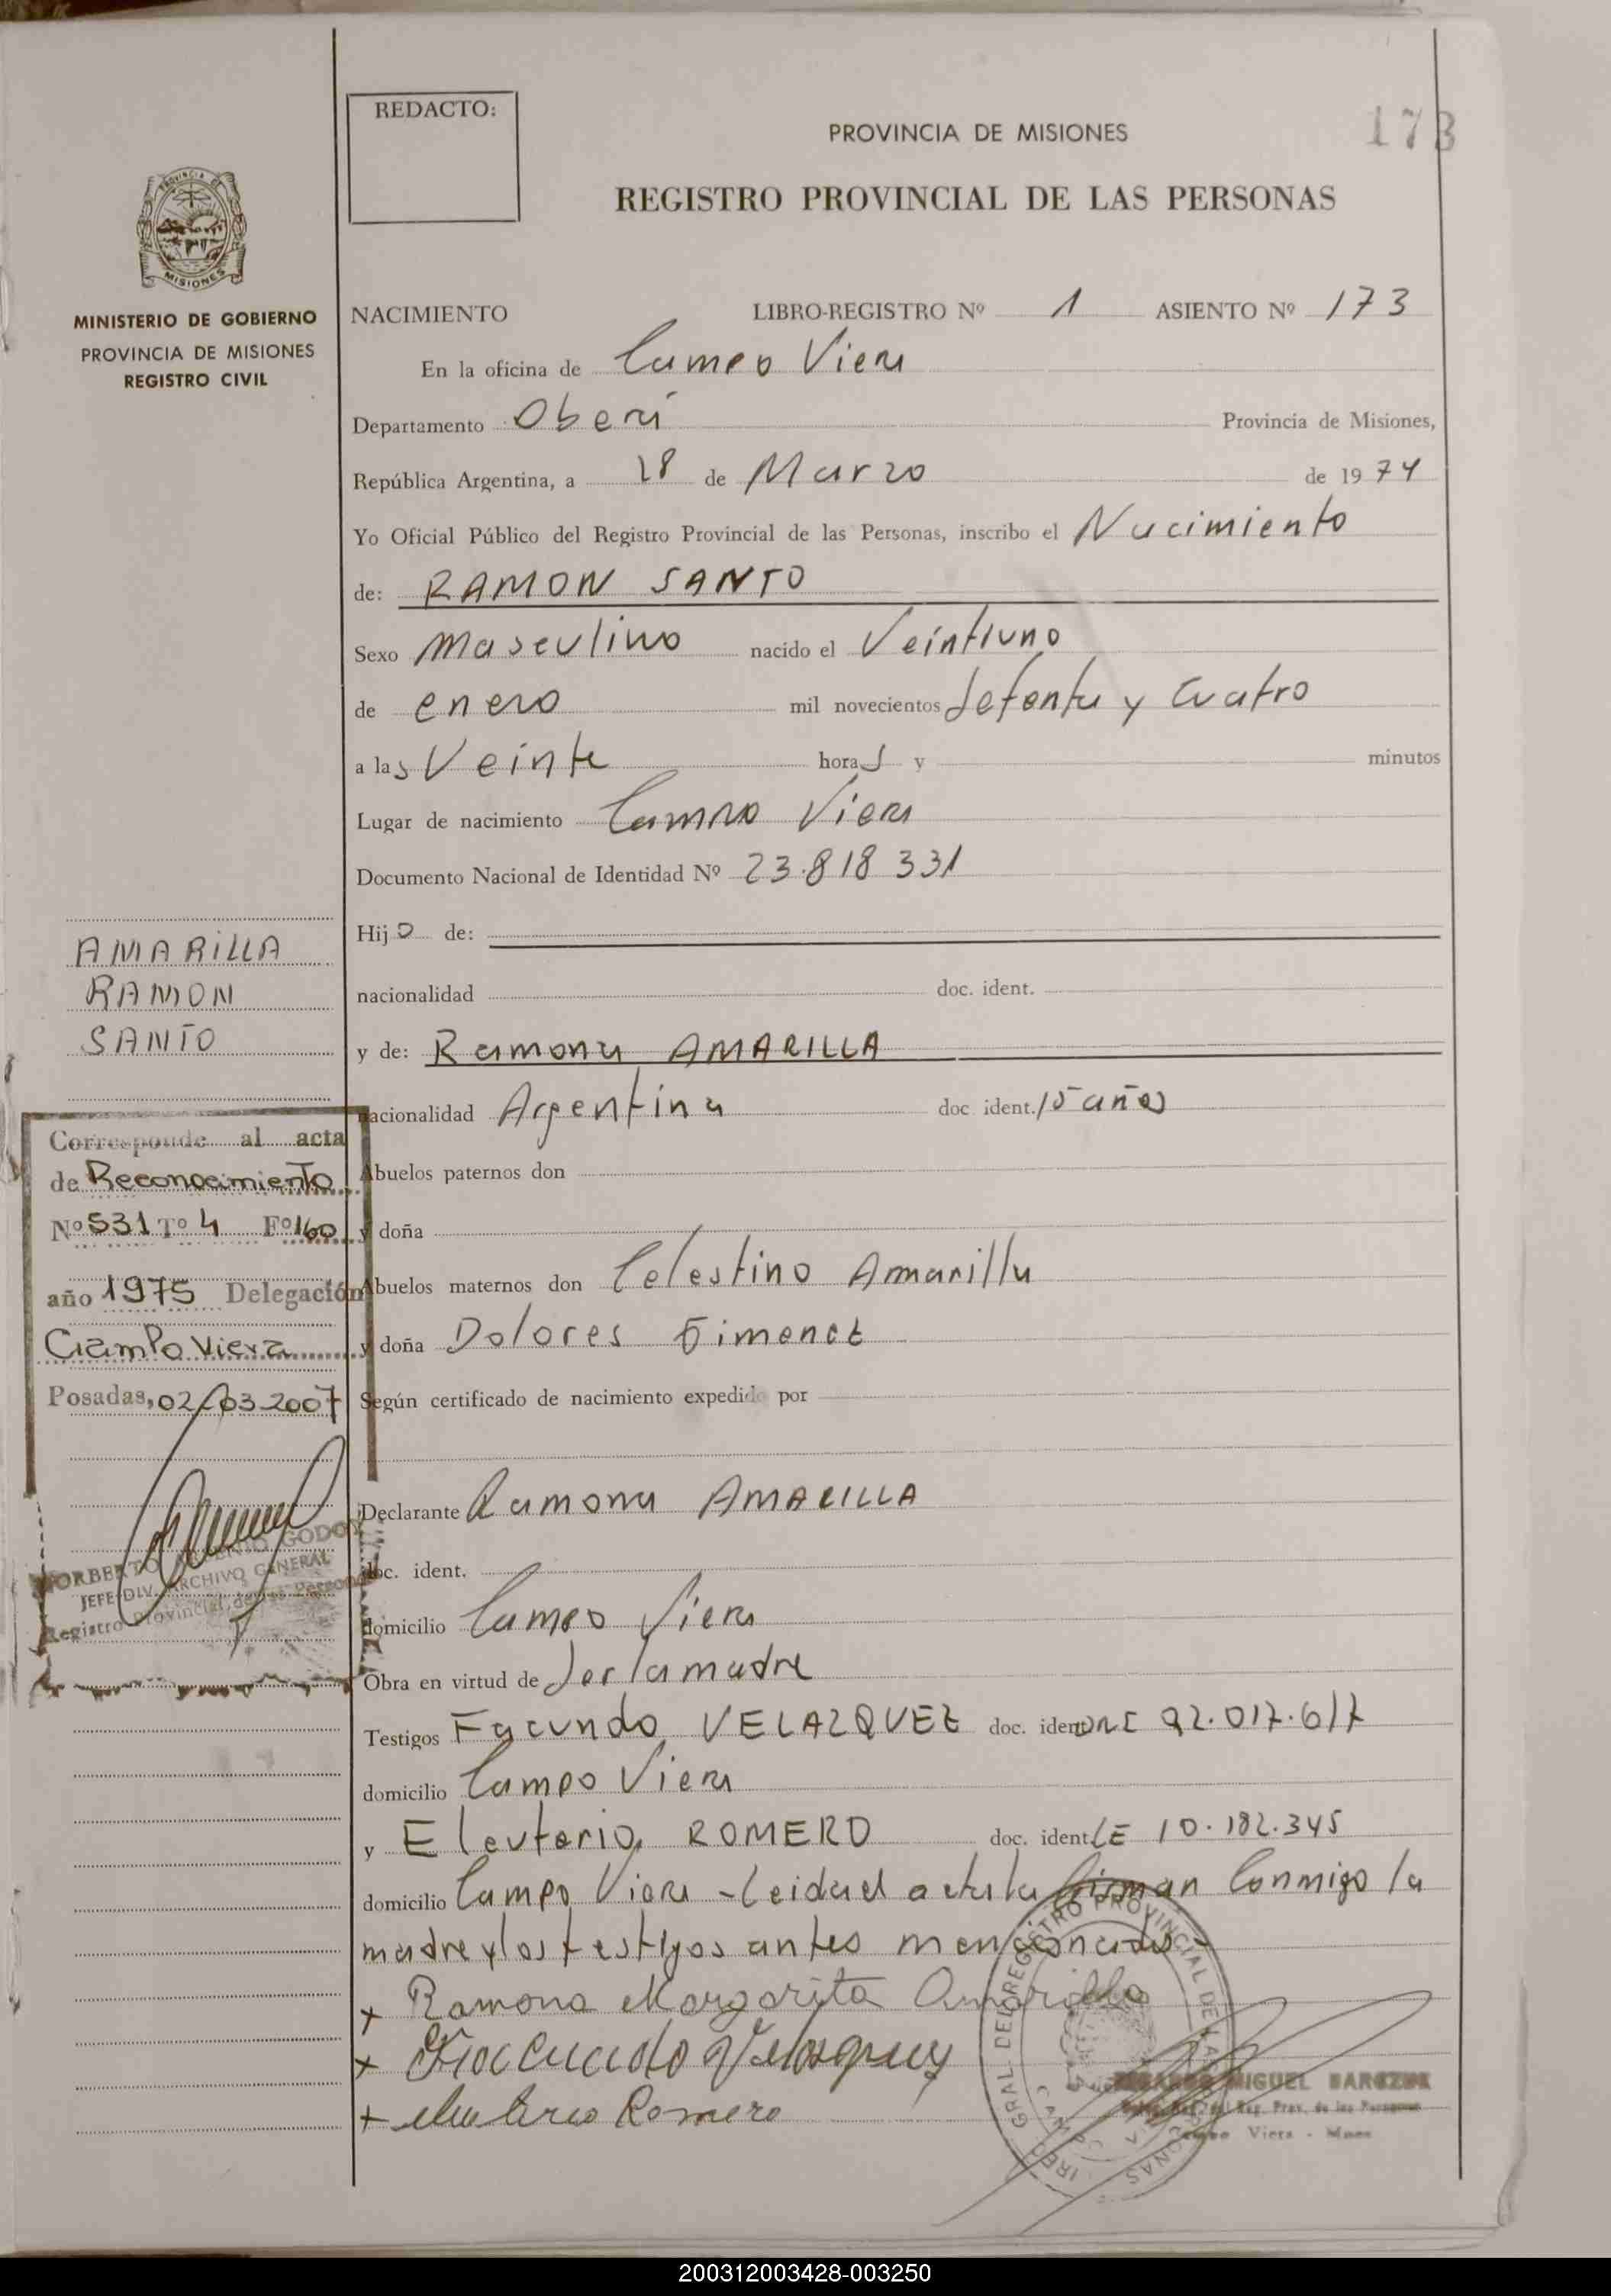 173
REDACTO:
PROVINCIA DE MISIONES
REGISTRO PROVINCIAL DE LAS PERSONAS
PROVINCIA DE
MISIONES
MINISTERIO DE GOBIERNO
PROVINCIA DE MISIONES
REGISTRO CIVIL
NACIMIENTO LIBRO-REGISTRO Nº 1 ASIENTO Nº 173
En la oficina de Campo Viera
Departamento Oberá Provincia de Misiones,
República Argentina, a 18 de Marzo de 1974
Yo Oficial Público del Registro Provincial de las Personas, inscribo el Nacimiento
de: RAMON SANTO
Sexo Masculino nacido el Veintiuno
de enero mil novecientos setenta y cuatro
a las Veinte horas y minutos
Lugar de nacimiento Campo Viera
Documento Nacional de Identidad Nº 23.818 331
Hijo de:
nacionalidad doc. ident.
y de: Ramona AMARILLA
nacionalidad Argentina doc ident. 15 años
Abuelos paternos don
y doña
Abuelos maternos don Celestino Amarilla
y doña Dolores Gimenez
Según certificado de nacimiento expedido por
Declarante Ramona AMARILLA
doc. ident.
domicilio Campo Viera
Obra en virtud de ser la madre
Testigos Facundo VELAZQUEZ doc. ident DNI 92.017.617
domicilio Campo Viera
y Eleuterio ROMERO doc. ident LE 10.182.345
domicilio Campo Viera - Leida el acta la firman Conmigo la
madre y los testigos antes mencionados -
+ Ramona Margarita Amarilla
+ Facundo Velasquez
+ Eleuterio Romero
AMARILLA
RAMON
SANTO
Corresponde al acta
de Reconocimiento
Nº 531 Tº 4 Fº 160
año 1975 Delegación
Campo Viera
Posadas, 02/03 2007
NORBERTO GODOY
JEFE DIV. ARCHIVO GENERAL
Registro Provincial de las Personas
GRAL DEL REGISTRO PROVINCIAL DE LAS PERSONAS
MIGUEL
Reg. Prov. de las Personas
Campo Viera - Mnes
200312003428-003250